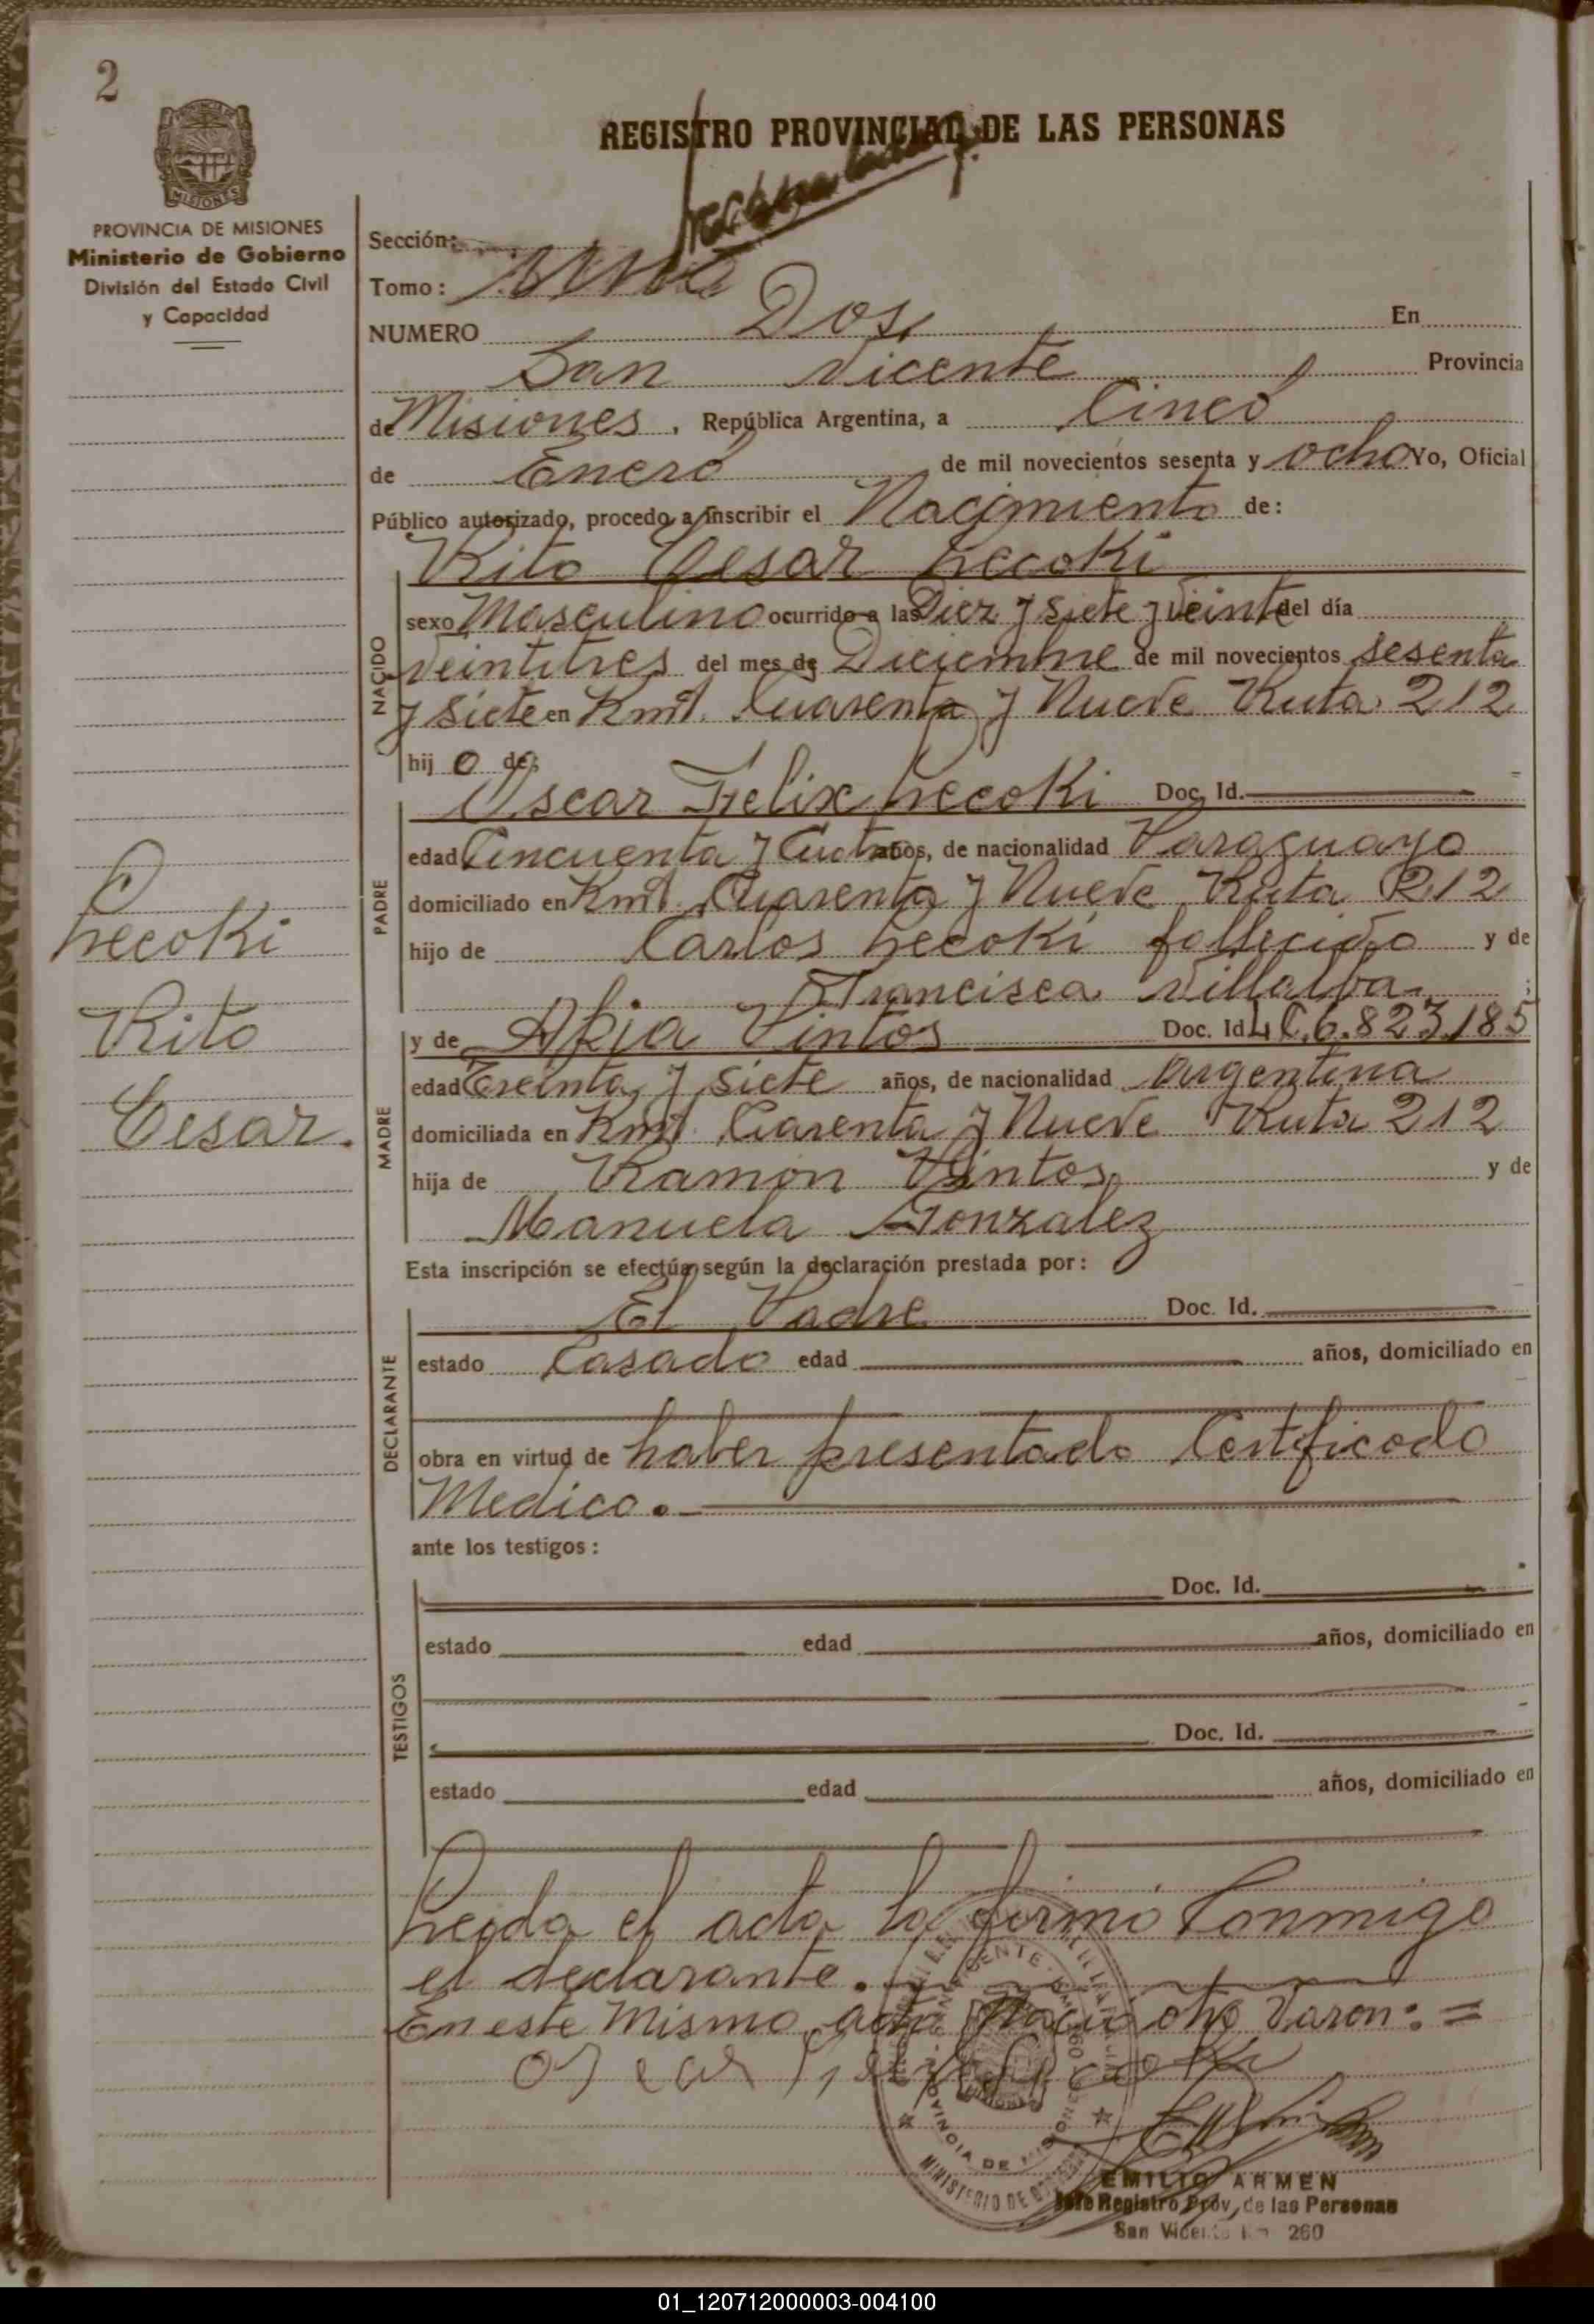 2
REGISTRO PROVINCIAL DE LAS PERSONAS
MISIONES
PROVINCIA DE MISIONES
Ministerio de Gobierno
División del Estado Civil
y Capacidad
Sección:
Tomo:
NUMERO Dos En
San Vicente Provincia
de Misiones, República Argentina, a Cinco
de Enero de mil novecientos sesenta y ocho Yo, Oficial
Público autorizado, procedo a inscribir el Nacimiento de:
Rito Cesar Lecoki
NACIDO
sexo Masculino ocurrido a las Diez y siete y veinte del día
veintitres del mes de Diciembre de mil novecientos sesenta
y siete en Kmt. Cuarenta y Nueve Ruta 212
hij o de:
Oscar Felix Lecoki Doc. Id.
PADRE
edad Cincuenta y Cuatro años, de nacionalidad Paraguayo
domiciliado en Kmt. Cuarenta y Nueve Ruta 212
hijo de Carlos Lecoki fallecido y de
Francisca Villalba ;
y de Pintos Doc. Id. L.C. 6.823.185
MADRE
edad Treinta y siete años, de nacionalidad Argentina
domiciliada en Kmt. Cuarenta y Nueve Ruta 212
hija de Ramon Pintos y de
Manuela Gonzalez
Esta inscripción se efectúa según la declaración prestada por:
El Padre Doc. Id.
DECLARANTE
estado Casado edad años, domiciliado en
obra en virtud de haber presentado Certificado
Medico.
ante los testigos:
TESTIGOS
Doc. Id.
estado edad años, domiciliado en
Doc. Id.
estado edad años, domiciliado en
Lecoki
Rito
Cesar.
Leida el acta la firmó Conmigo
el declarante.
En este Mismo acto Nació otro Varon: =
EMILIO ARMEN
Jefe Registro Prov. de las Personas
San Vicente Km 260
PROVINCIA DE MISIONES
MINISTERIO DE GOBIERNO
01_120712000003-004100